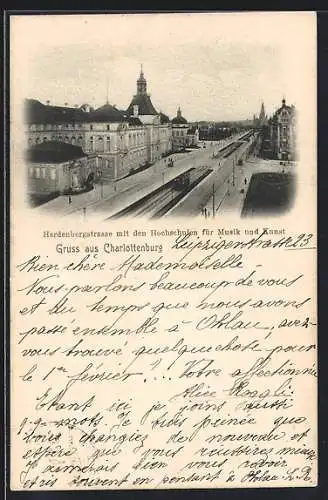 Hardenbergstrasse mit den Hochschulen für Musik und Kunst
Gruss aus Charlottenburg Leipzigerstrasse 23
Bien chère Mademoiselle
Nous parlons beaucoup de vous
et du temps que nous avons
passé ensemble à Ohlau, avez-
vous trouvé quelque chose pour
le 1er février?... Votre affectionnée
Alice
Etant ici je joins aussi
q.q. mots. Je suis peinée que
vous changiez de nouveau et
espère que vous
J'aimerais bien vous revoir
et souvent en pensant à Ohlau